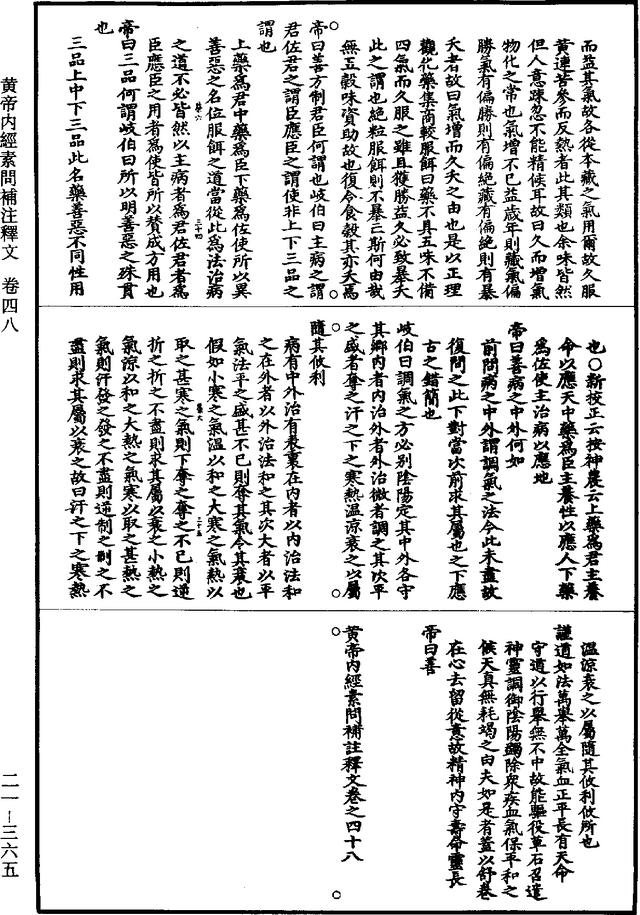 而益其氣故各從本藏之氣用爾故久服
黄連苦參而反熱者此其類也余味皆然
但人意踈忽不能精候耳故曰久而增氣
物化之常也氣增不已益歲年則藏氣偏
勝氣有偏勝則有偏絶藏有偏絶則有暴
夭者故曰氣增而久夭之由也是以正理
觀化藥集商較服餌曰藥不具五味不備
四氣而久服之雖且獲勝益久必致暴夭
此之謂也絶粒服餌則不暴亡斯何由哉
無五穀味資助故也復令食穀其亦夭焉
帝曰善方制君臣何謂也岐伯曰主病之謂
君佐君之謂臣應臣之謂使非上下三品之
謂也
上藥爲君中藥爲臣下藥爲佐使所以異
善惡之名位服餌之道當從此爲法治病
之道不必皆然以主病者爲君佐君者爲
臣應臣之用者爲使皆所以贊成方用也
帝曰三品何謂岐伯曰所以明善惡之殊貫
也
三品上中下三品此名藥善惡不同性用
也○新校正云按神農云上藥爲君主養
命以應天中藥爲臣主養性以應人下藥
爲佐使主治病以應地
帝曰善病之中外何如
前問病之中外謂調氣之法今此未盡故
復問之此下對當次前求其屬也之下應
古之錯簡也
岐伯曰調氣之方必别陰陽定其中外各守
其鄉内者内治外者外治微者調之其次平
之盛者奪之汗之下之寒熱温涼衰之以屬
隨其攸利
病有中外治有表裏在内者以内治法和
之在外者以外治法和之其次大者以平
氣法平之盛甚不已則奪其氣令其衰也
假如小寒之氣温以和之大寒之氣熱以
取之甚寒之氣則下奪之奪之不已則逆
折之折之不盡則求其屬以衰之小熱之
氣涼以和之大熱之氣寒以取之甚熱之
氣則汗發之發之不盡則逆制之制之不
盡則求其屬以衰之故曰汗之下之寒熱
温涼衰之以屬隨其攸利攸所也
謹道如法萬舉萬全氣血正平長有天命
守道以行舉無不中故能驅役草石召遣
神靈調御陰陽蠲除衆疾血氣保平和之
候天真無耗竭之由夫如是者蓋以舒卷
在心去留從意故精神内守壽命靈長
帝曰善
黄帝内經素問補註釋文卷之四十八
黄帝内經素問補注釋文　卷四八
二一－三六五